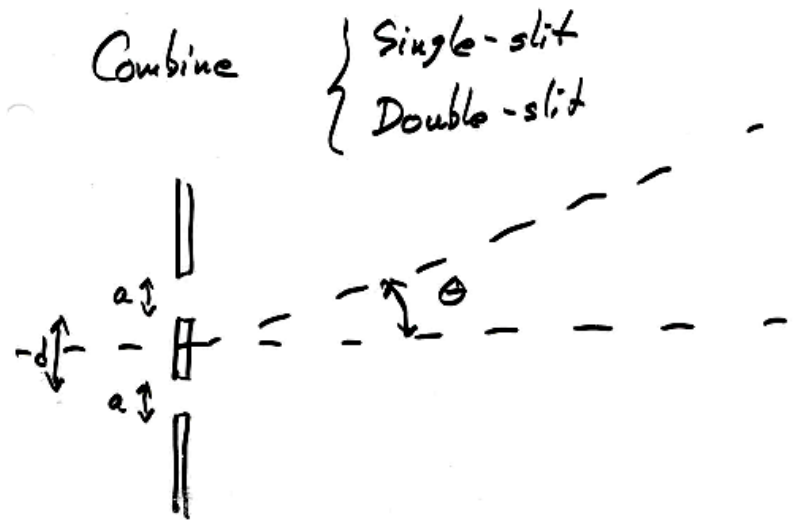 Combine
Single-slit
Double-slit
a
θ
d
a